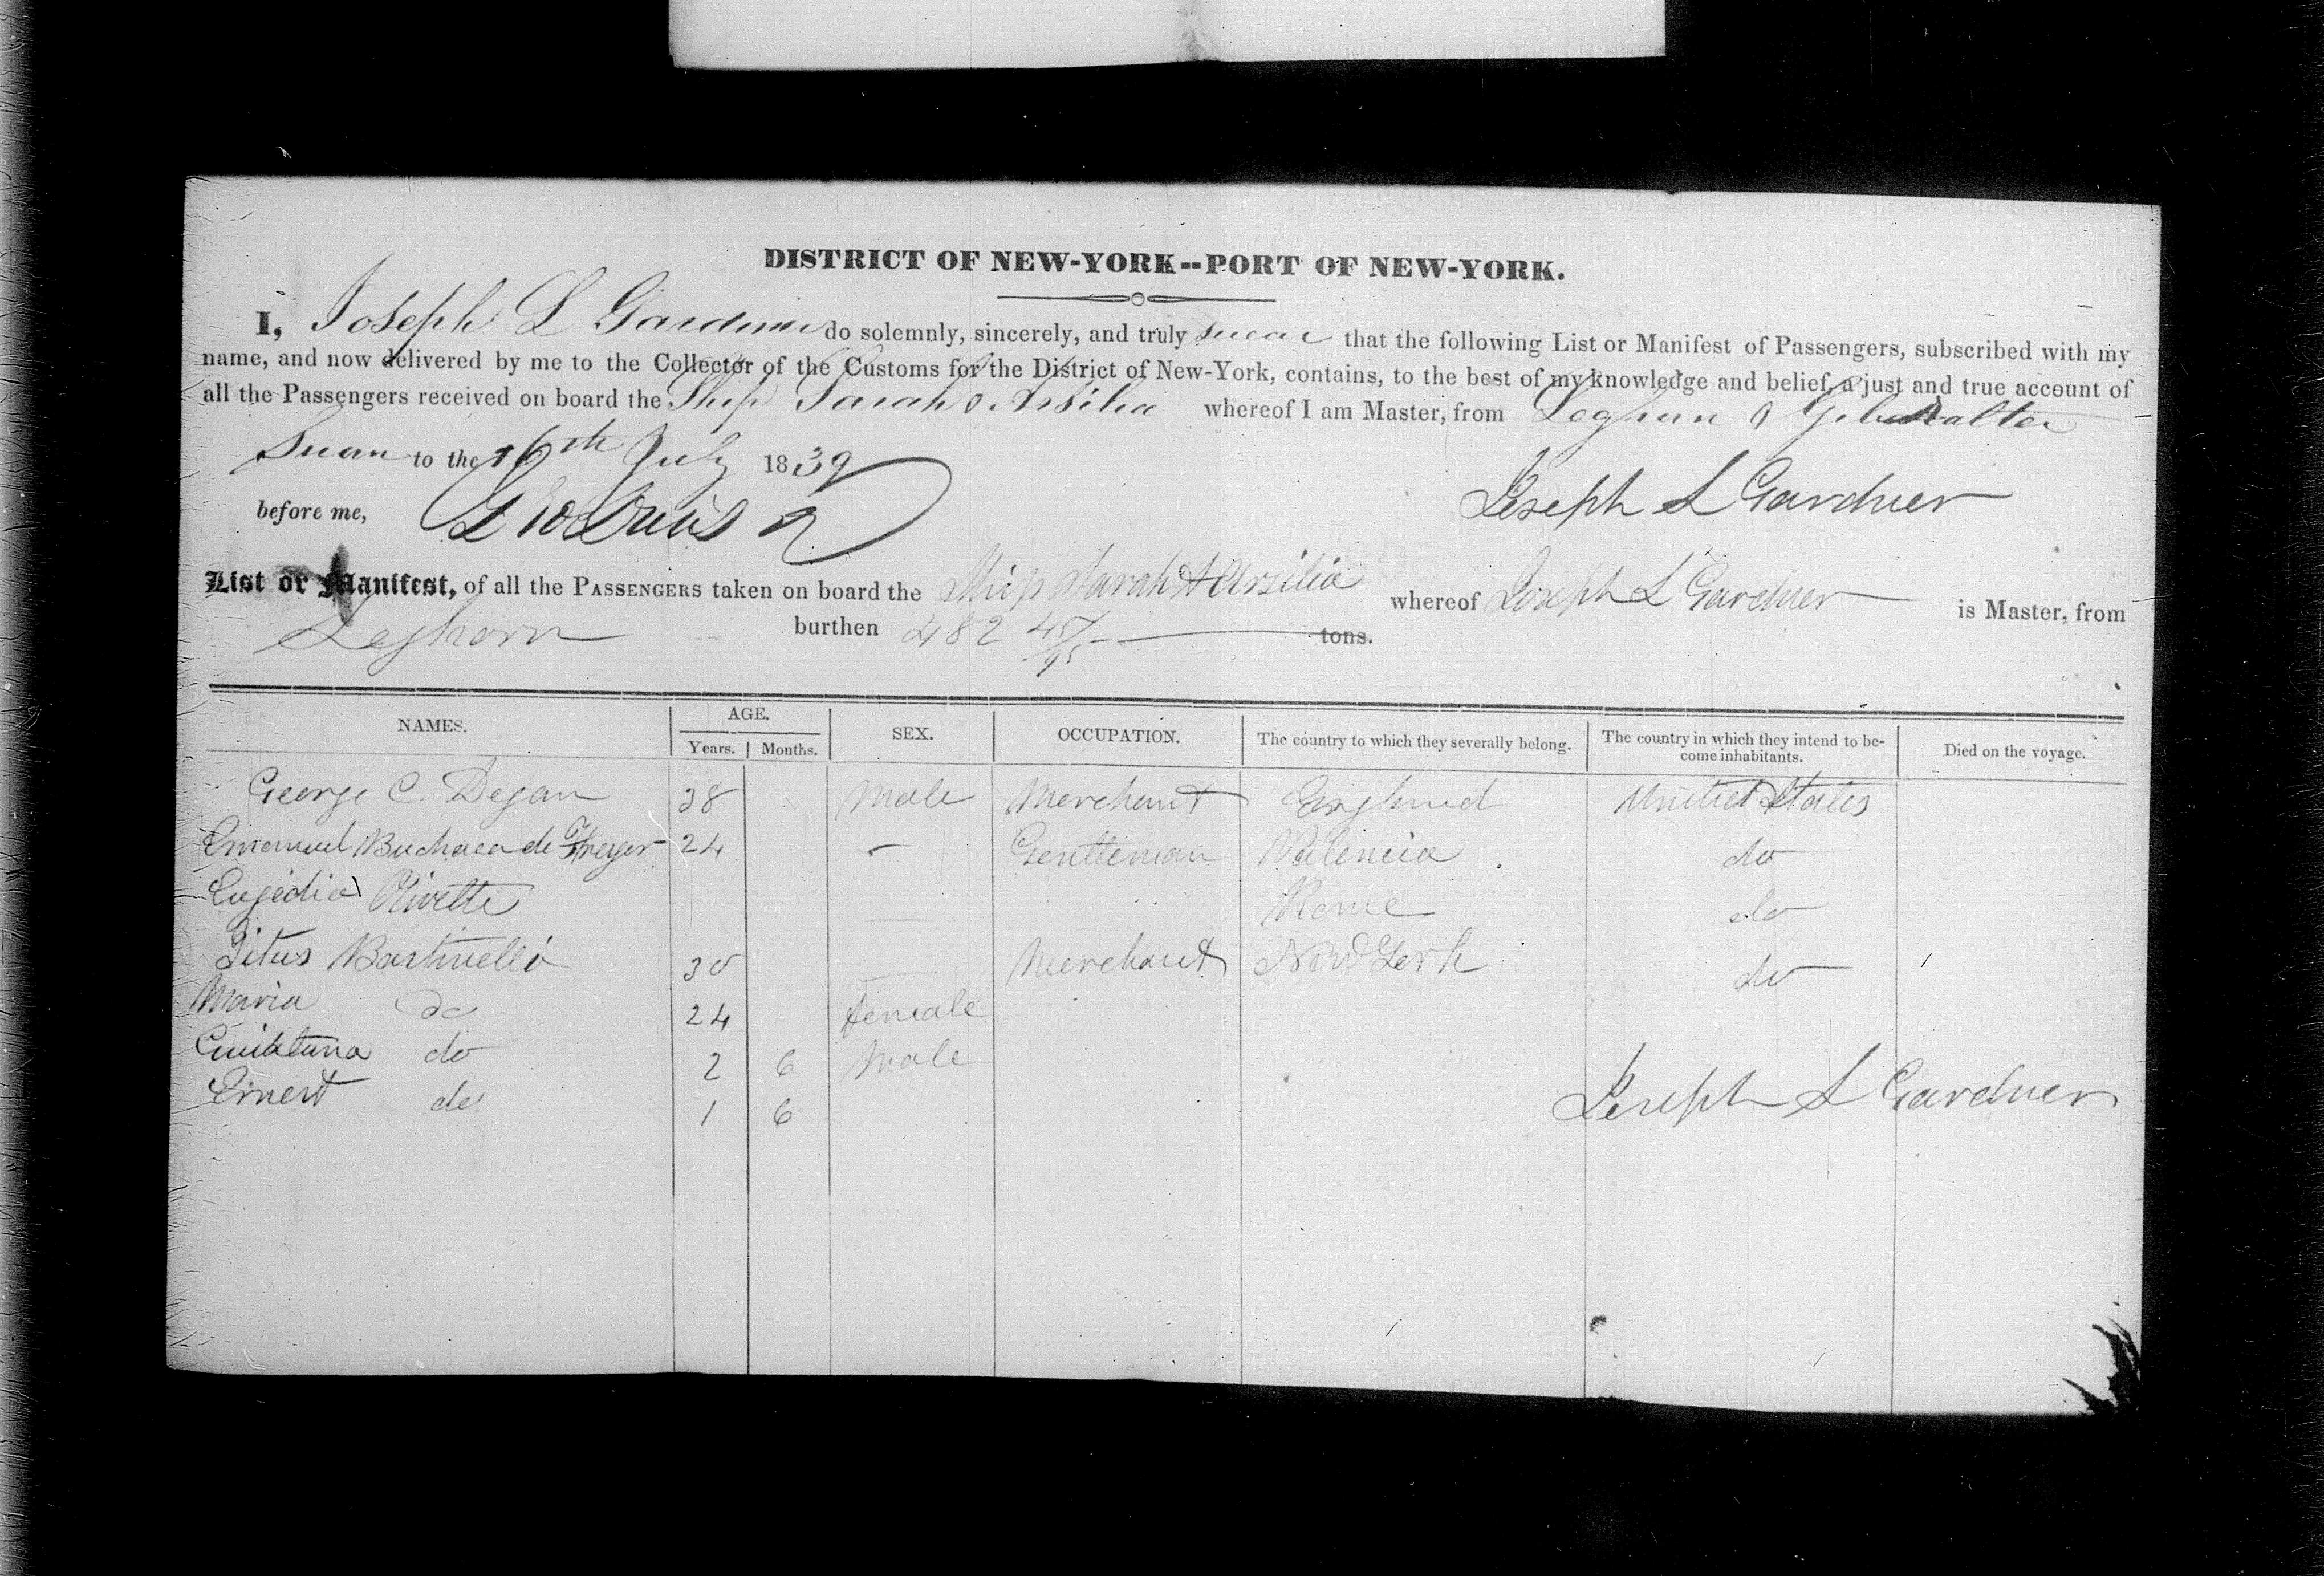 DISTRICT OF NEW-YORK--PORT OF NEW-YORK.
I, Joseph L Gardner do solemnly, sincerely, and truly swear that the following List or Manifest of Passengers, subscribed with my
name, and now delivered by me to the Collector of the Customs for the District of New-York, contains, to the best of my knowledge and belief, a just and true account of
all the Passengers received on board the Ship Sarah & Arsilia whereof I am Master, from Leghorn & Gibralter
Sworn to the 16th July 1839
Joseph L Gardner
before me,
List or Manifest, of all the PASSENGERS taken on board the Ship Sarah & Arsilia whereof Joseph L Gardner is Master, from
Leghorn burthen 482 45/95 tons.
NAMES. AGE. SEX. OCCUPATION. The country to which they severally belong. The country in which they intend to be-come inhabitants. Died on the voyage.
Years. Months.
George C. Degan 38 Male Merchant England United States
Emanuel de 24 - Gentleman Valencia do
Olivette Rome do
Titus 30 Merchant New York do
Maria do 24 female
do 2 6 Male
Ernest do 1 6
Joseph L Gardner